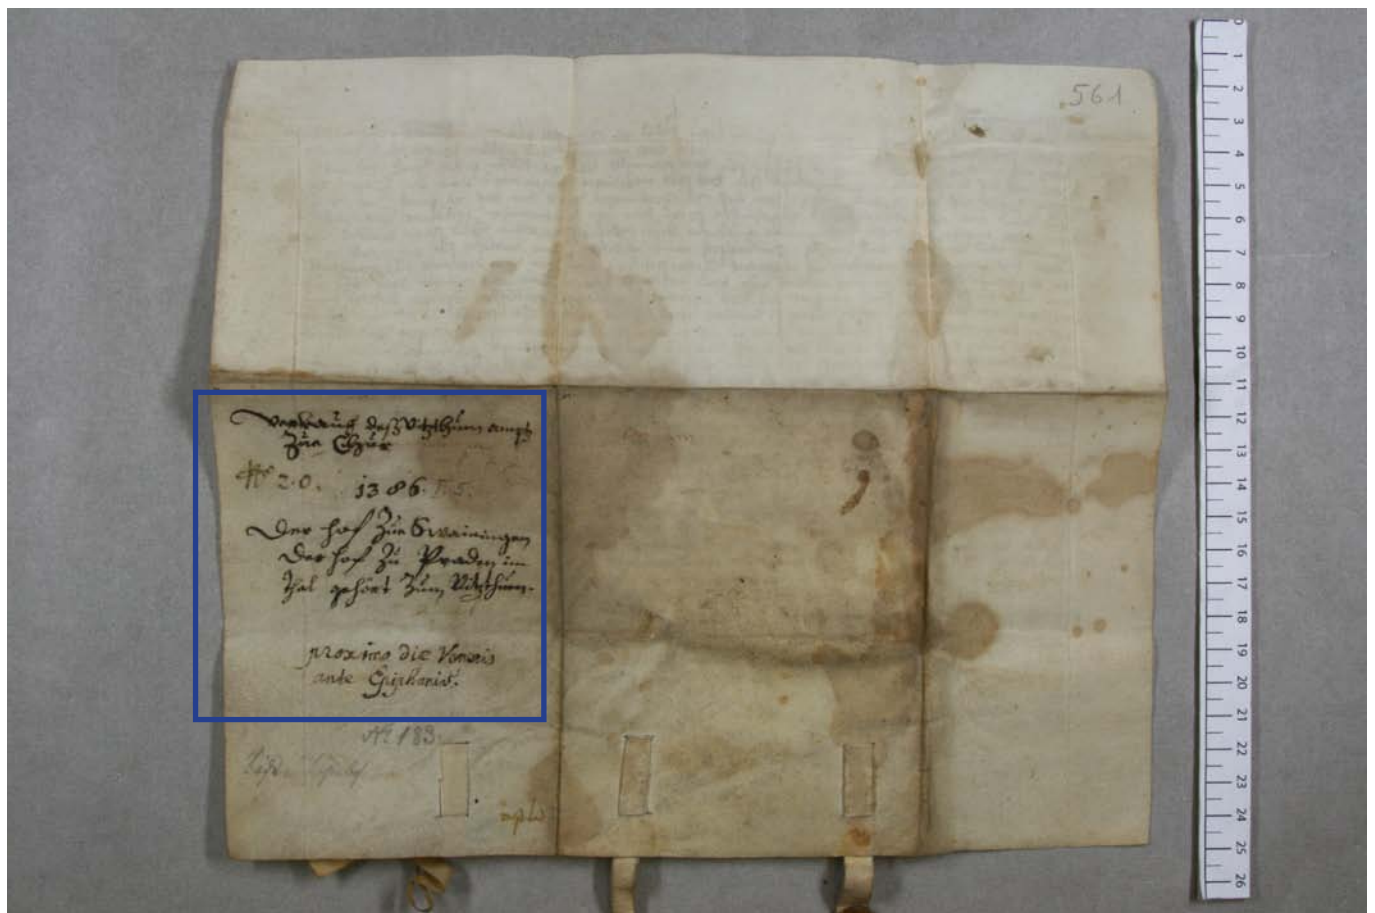 561
Verkauf deß Vitzthum ampts
Zue Chur
No 20. 1386.
Der hof Zue Swainingen
Der hof Zu Praden im
thal gehört Zum Vitzthum.
proximo die Veneris
ante Epiphanid.
No 183.
0 1 2 3 4 5 6 7 8 9 10 11 12 13 14 15 16 17 18 19 20 21 22 23 24 25 26